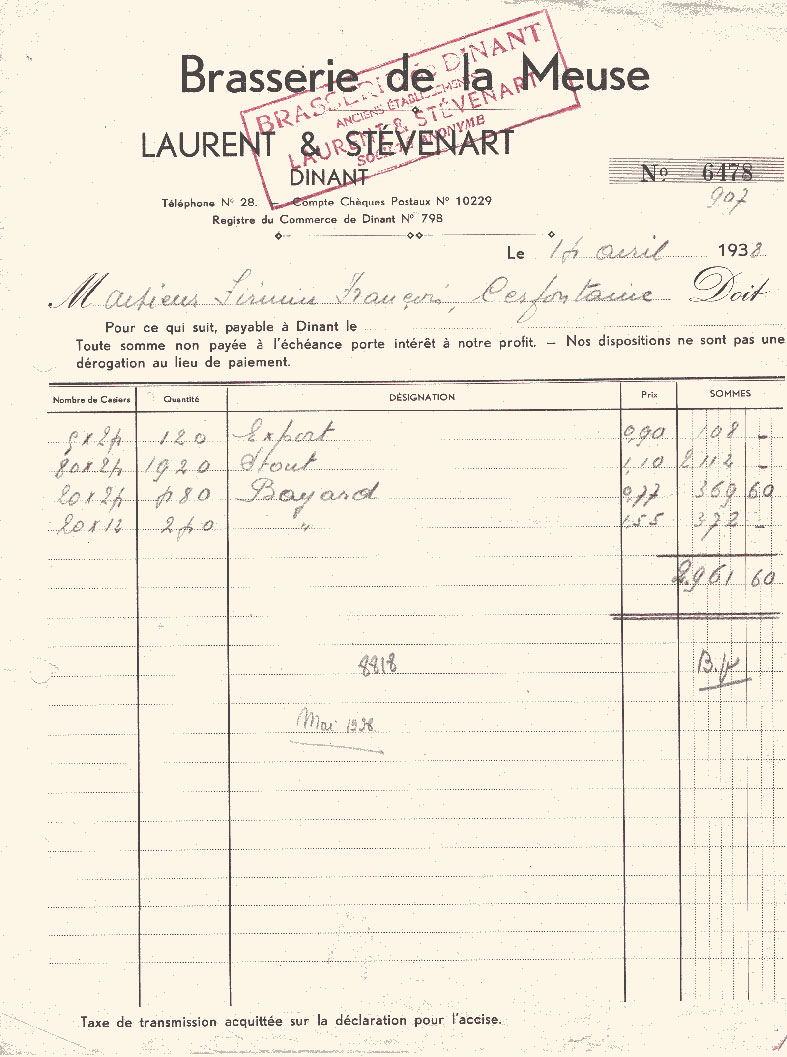 Brasserie de la Meuse
BRASSERIES DE DINANT
ANCIENS ÉTABLISSEMENTS
LAURENT & STÉVENART
SOCIÉTÉ ANONYME
LAURENT & STÉVENART
DINANT
Nº 6478
907
Téléphone Nº 28. — Compte Chèques Postaux Nº 10229
Registre du Commerce de Dinant Nº 798
Le 14 avril 1938
Monsieur Firmin François, Cerfontaine Doit
Pour ce qui suit, payable à Dinant le
Toute somme non payée à l'échéance porte intérêt à notre profit. — Nos dispositions ne sont pas une
dérogation au lieu de paiement.
Nombre de Casiers Quantité DÉSIGNATION Prix SOMMES
5 x 24 120 Export 0,90 108 -
80 x 24 1920 Stout 1,10 2112 -
20 x 24 480 Bayard 0,77 369 60
20 x 12 240 " 1,55 372 -
2.961 60
8818
Mai 1938
Taxe de transmission acquittée sur la déclaration pour l'accise.